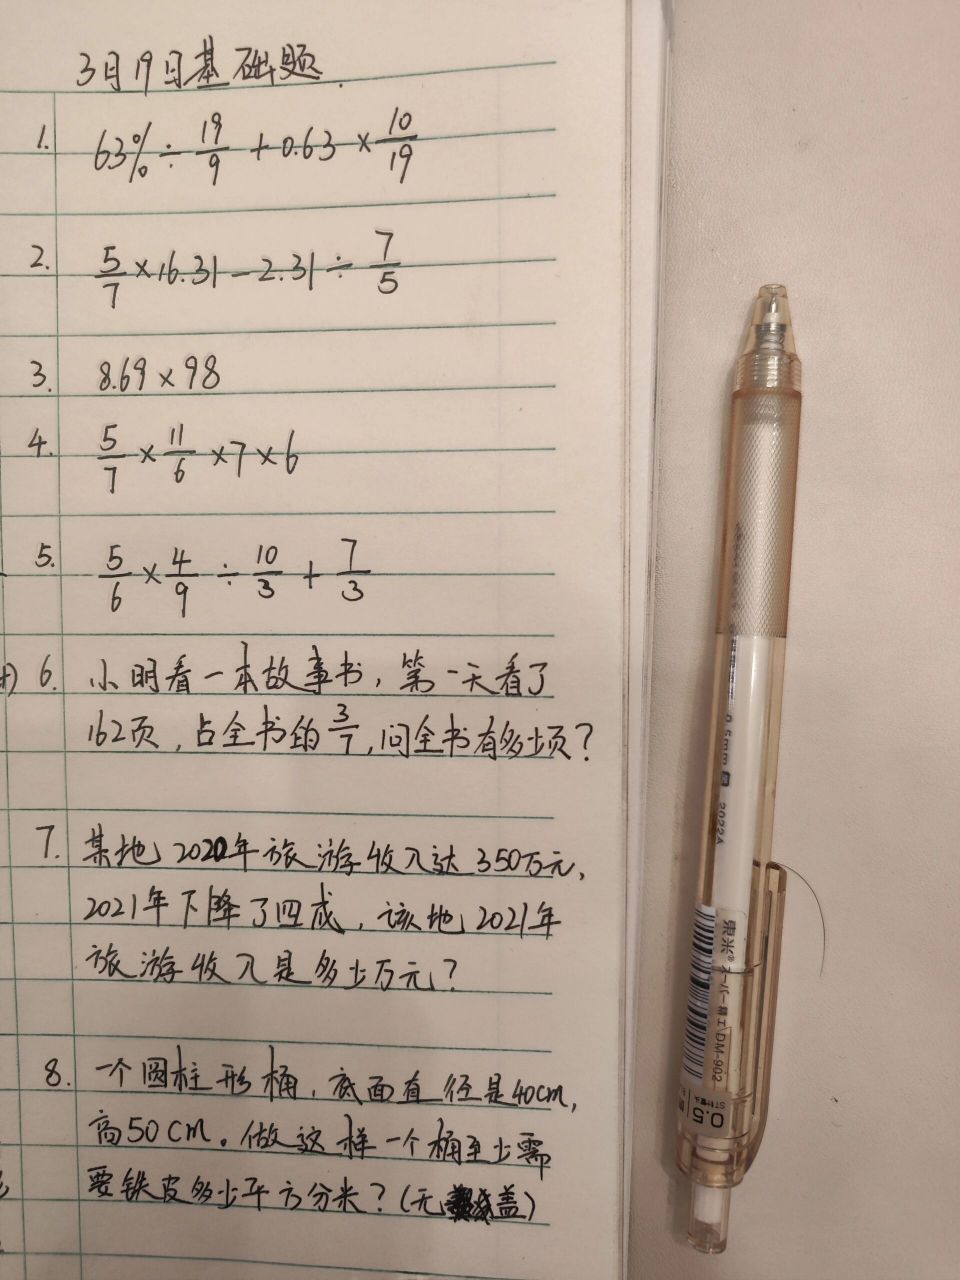 3月19日基础题.
1. 63% ÷ 19/9 + 0.63 × 10/19
2. 5/7 × 16.31 - 2.31 ÷ 7/5
3. 8.69 × 98
4. 5/7 × 11/6 × 7 × 6
5. 5/6 × 4/9 ÷ 10/3 + 7/3
6. 小明看一本故事书，第一天看了
162页，占全书的3/7，问全书有多少页？
7. 某地2020年旅游收入达350万元，
2021年下降了四成，该地2021年
旅游收入是多少万元？
8. 一个圆柱形桶，底面直径是40cm，
高50cm。做这样一个桶至少需
要铁皮多少平方分米？（无盖）
0.5mm
2022A
DM-902
0.5